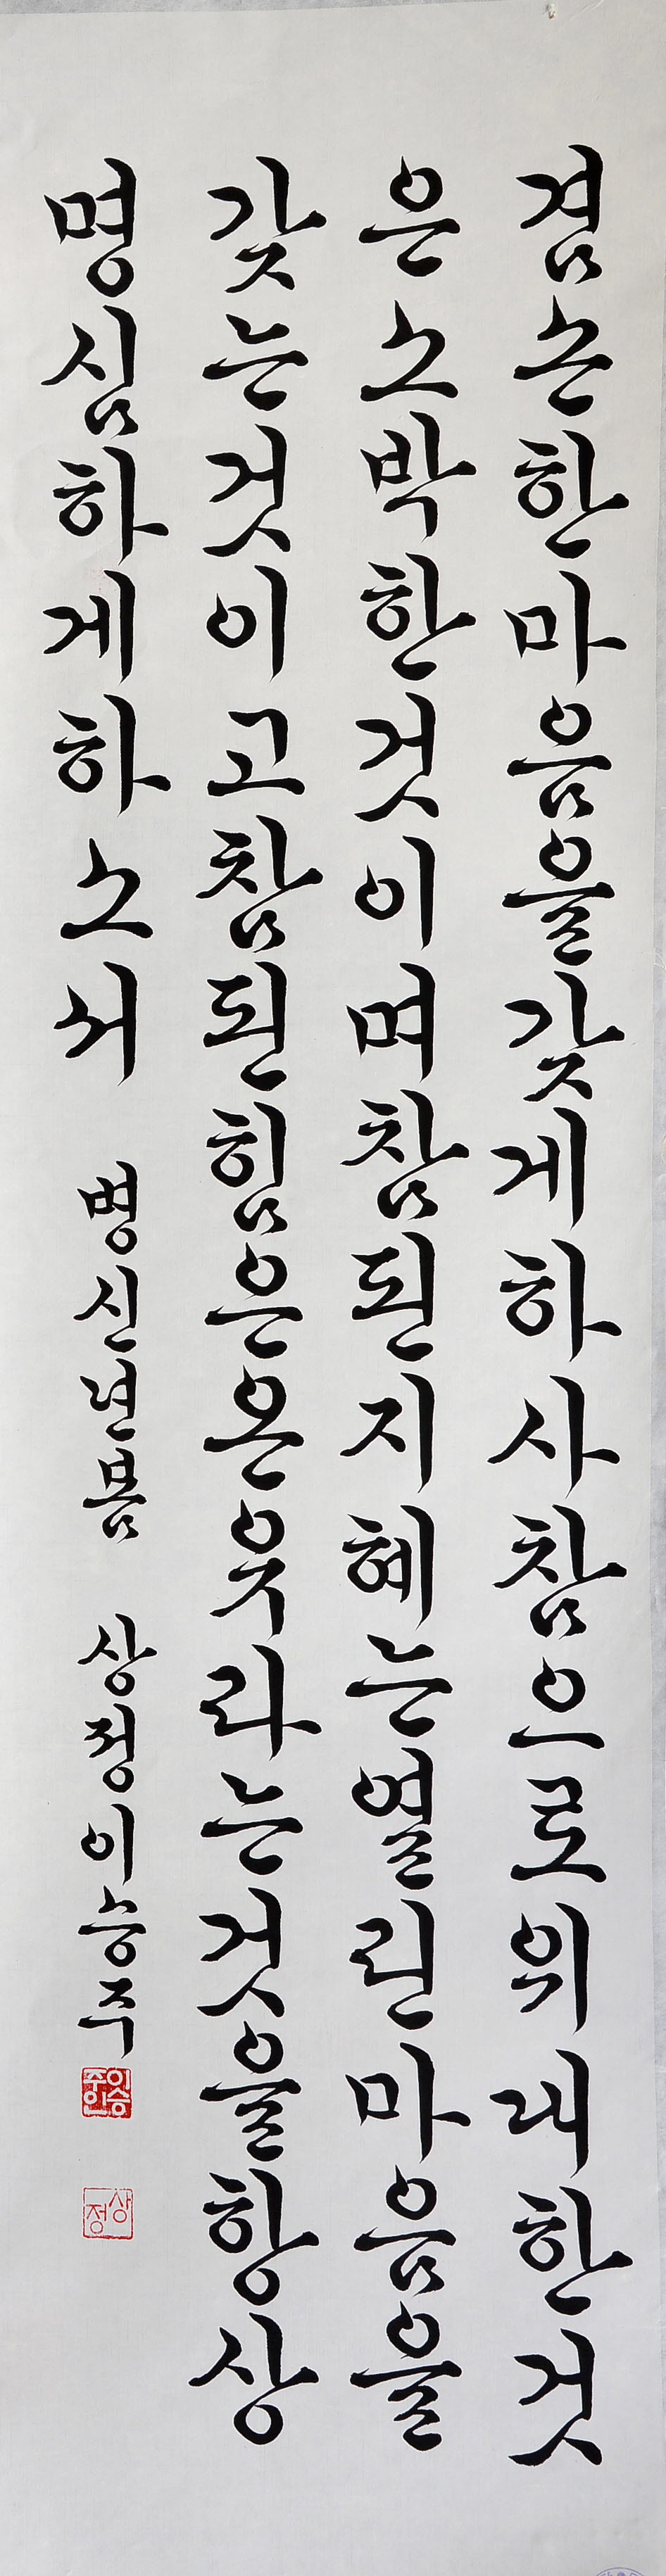 겸손한마음을갖게하사참으로위대한것
은소박한것이며참된지혜는열린마음을
갖는것이고참된힘은온유라는것을항상
명심하게하소서 병신년봄 상정이승주
이승
주인
상
정